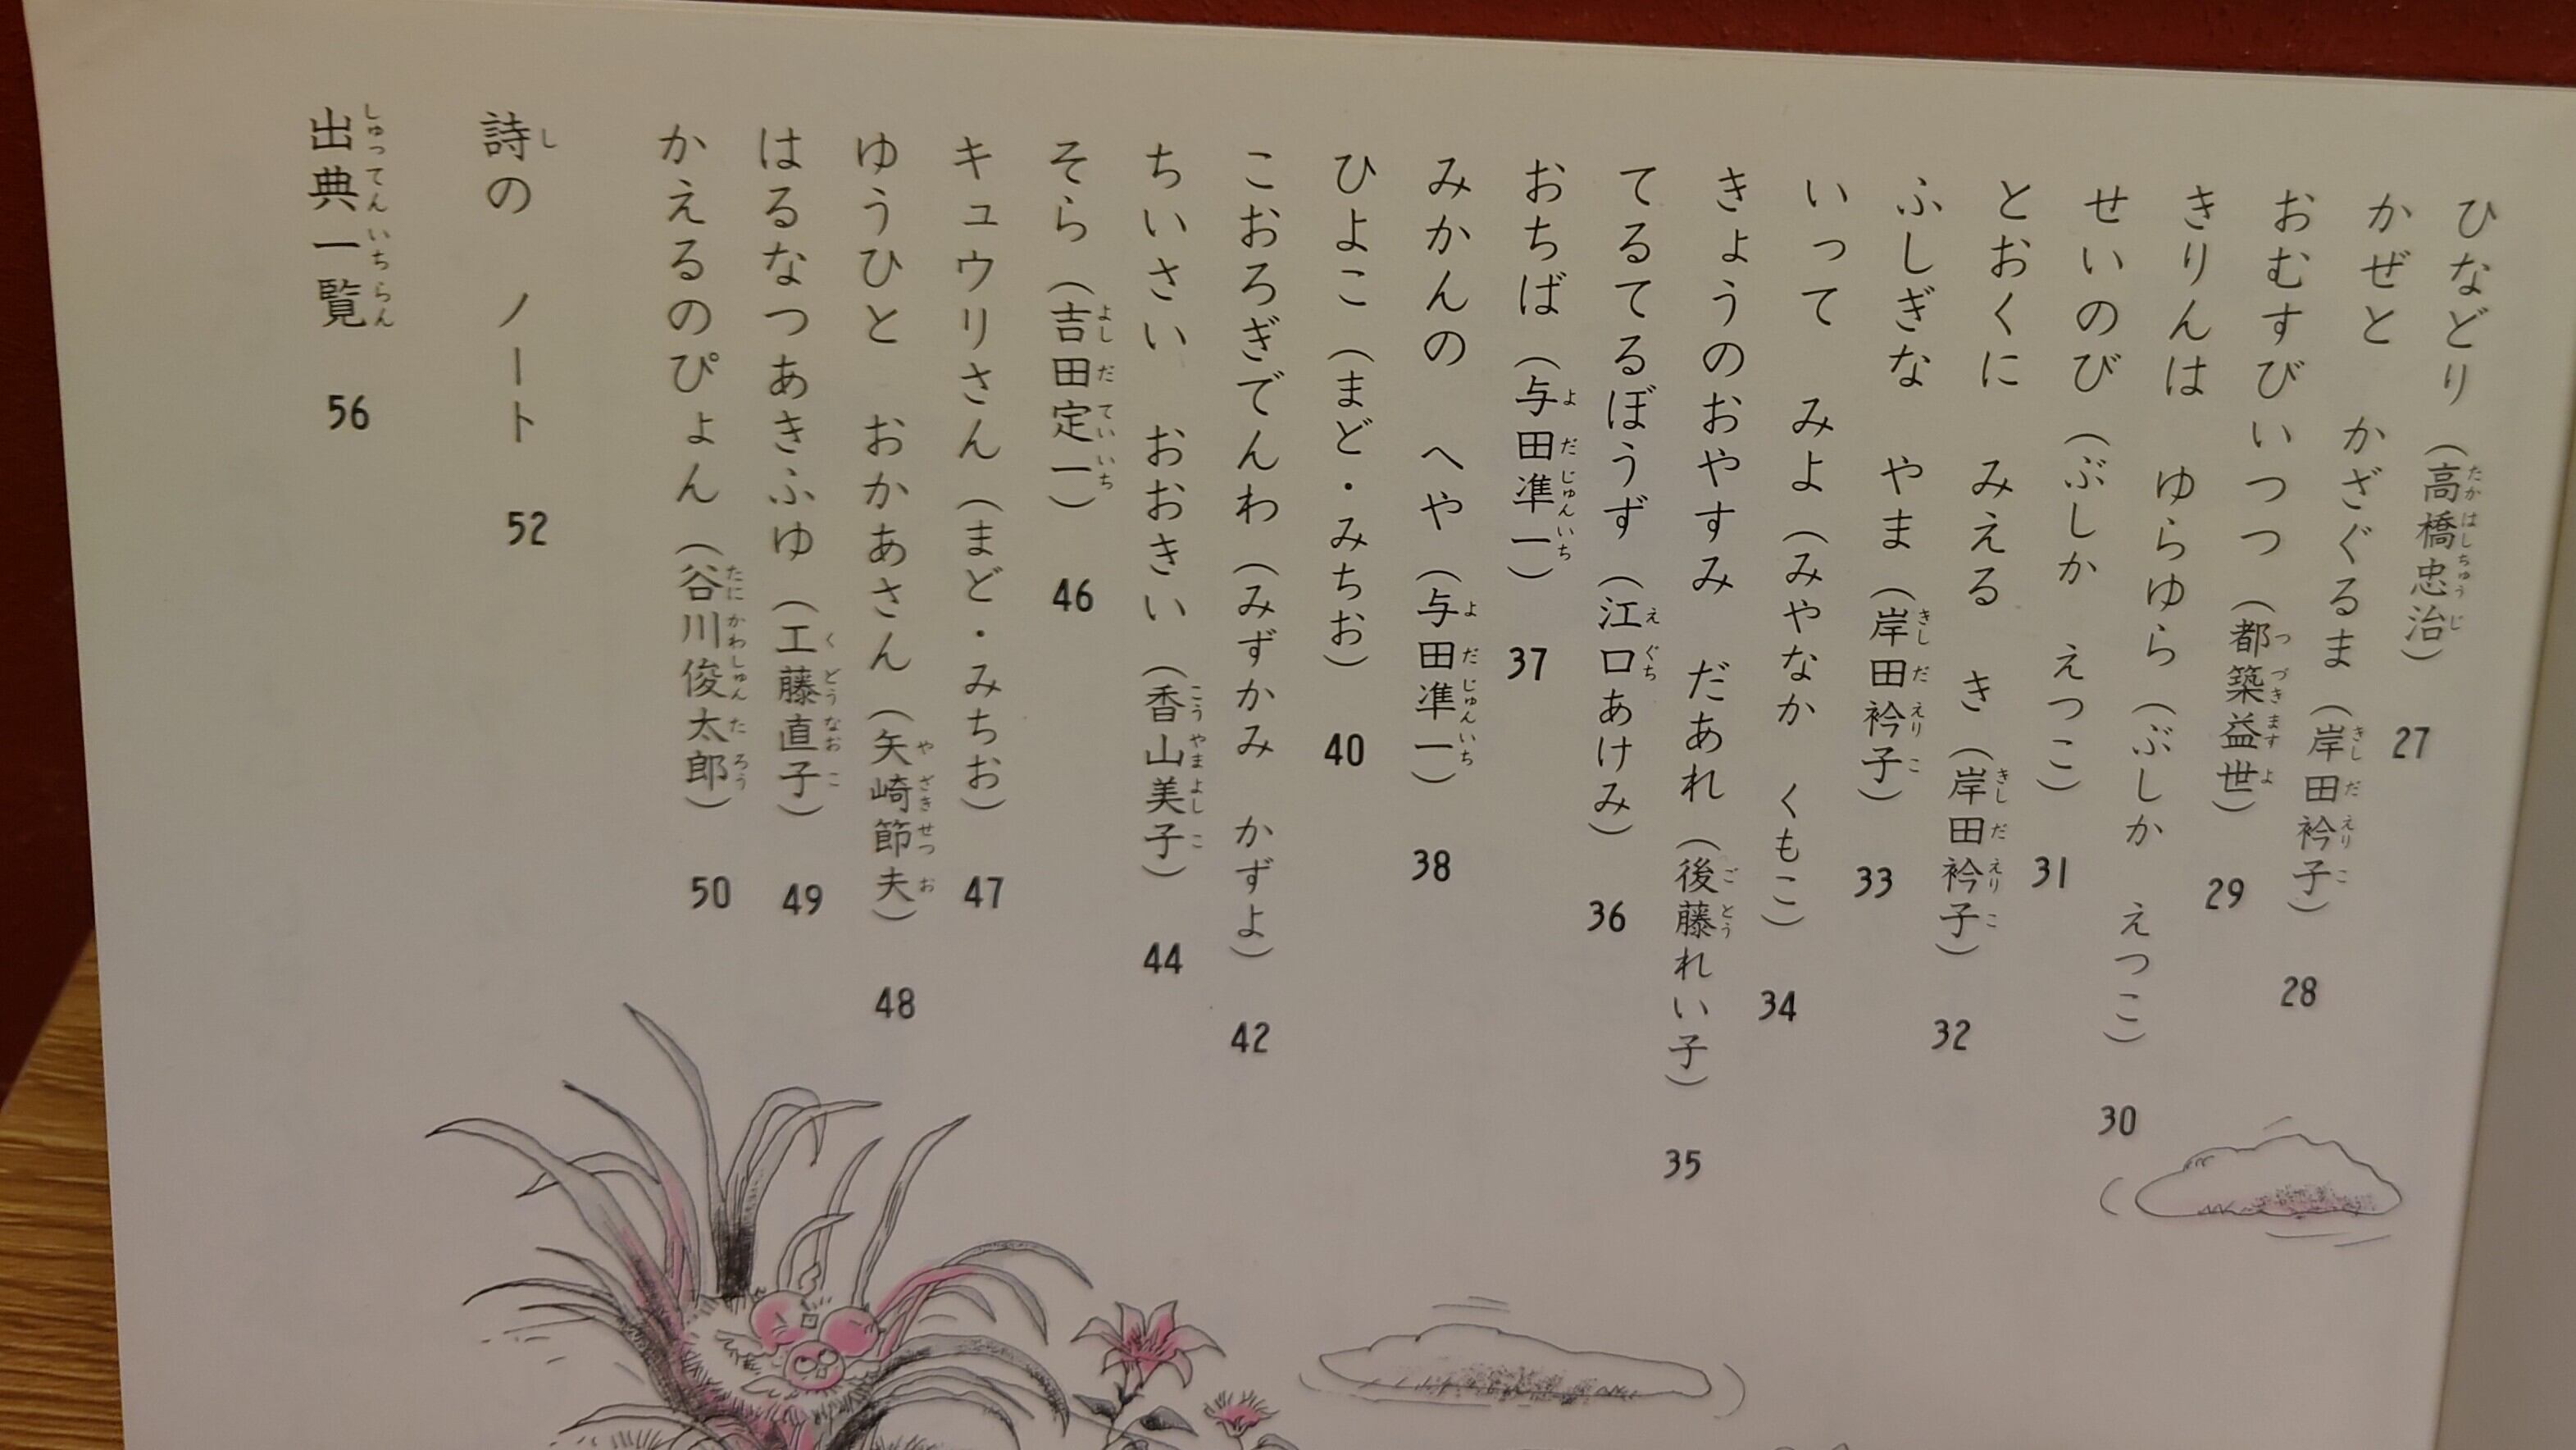 ひなどり（高橋忠治） 27
かぜと かざぐるま（岸田衿子） 28
おむすびいつつ（都築益世） 29
きりんは ゆらゆら（ぶしか えつこ） 30
せいのび（ぶしか えつこ） 31
とおくに みえる き（岸田衿子） 32
ふしぎな やま（岸田衿子） 33
いって みよ（みやなか くもこ） 34
きょうのおやすみ だあれ（後藤れい子） 35
てるてるぼうず（江口あけみ） 36
おちば（与田凖一） 37
みかんの へや（与田凖一） 38
ひよこ（まど・みちお） 40
こおろぎでんわ（みずかみ かずよ） 42
ちいさい おおきい（香山美子） 44
そら（吉田定一） 46
キュウリさん（まど・みちお） 47
ゆうひと おかあさん（矢崎節夫） 48
はるなつあきふゆ（工藤直子） 49
かえるのぴょん（谷川俊太郎） 50
詩の ノート 52
出典一覧 56